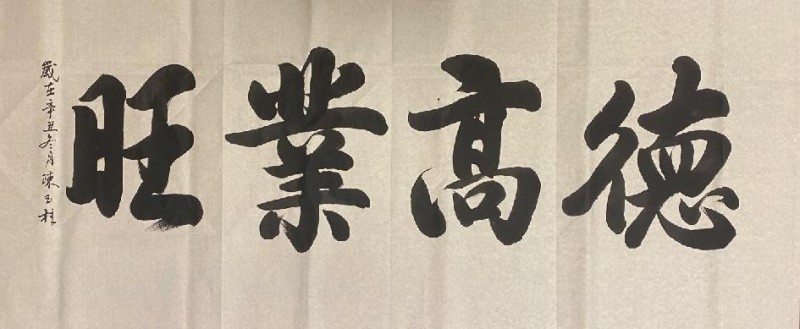 德高業旺
歲在辛丑冬月陳玉柱